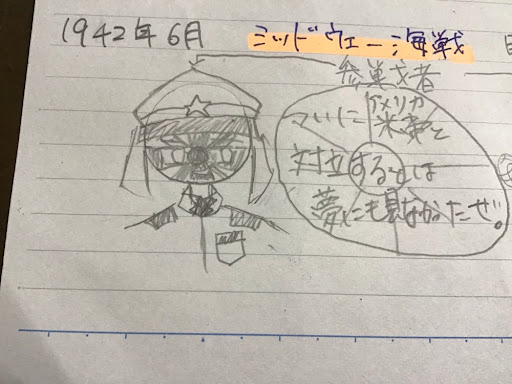 1942年6月 ミッドウェー海戦
参戦者
アメリカ
ついに米軍と
対立するとは
夢にも見なかったぜ。